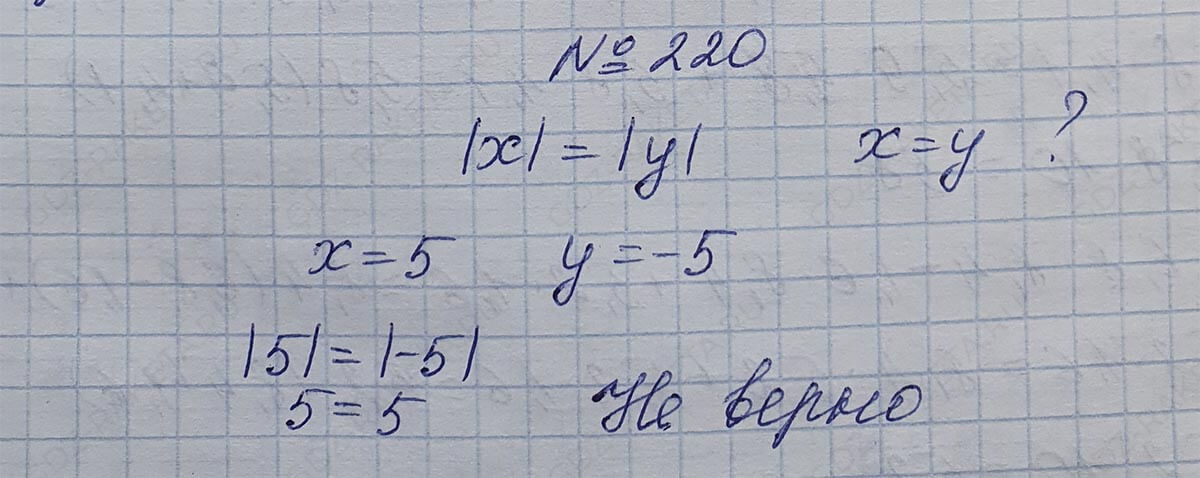 № 220
|x| = |y| x = y ?
x = 5 y = -5
|5| = |-5|
5 = 5 Не верно